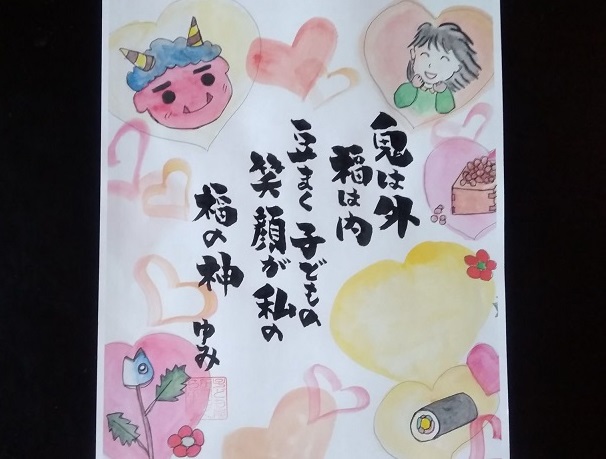 鬼は外
福は内
豆まく子どもの
笑顔が私の
福の神
ゆみ